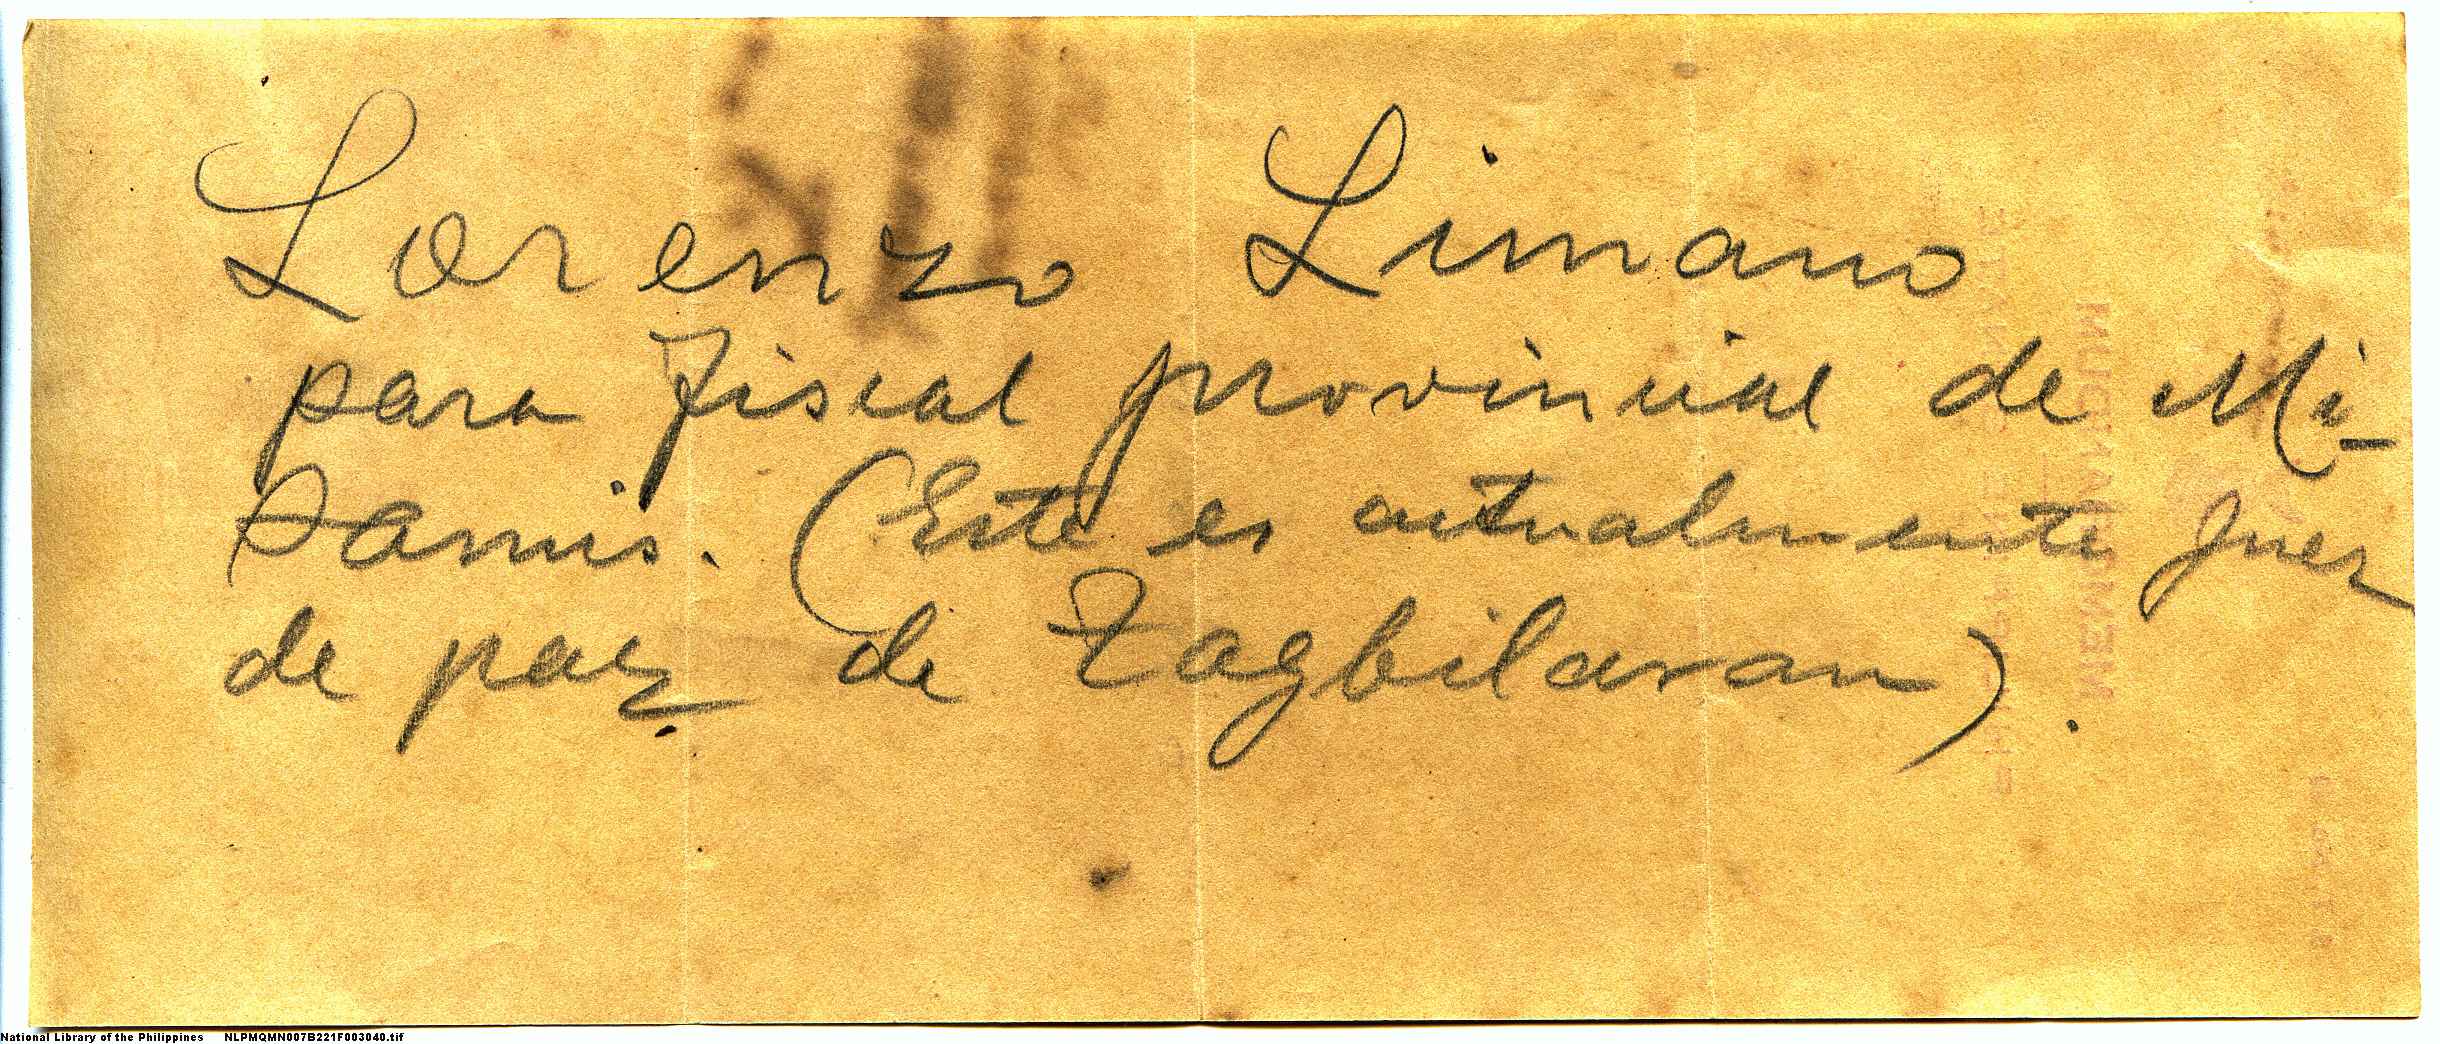 Lorenzo Limano
para fiscal provincial de Mi-
samis. (Este es actualmente juez
de paz de Tagbilaran).
MEMORANDUM
National Library of the Philippines NLPMQMN007B221F003040.tif